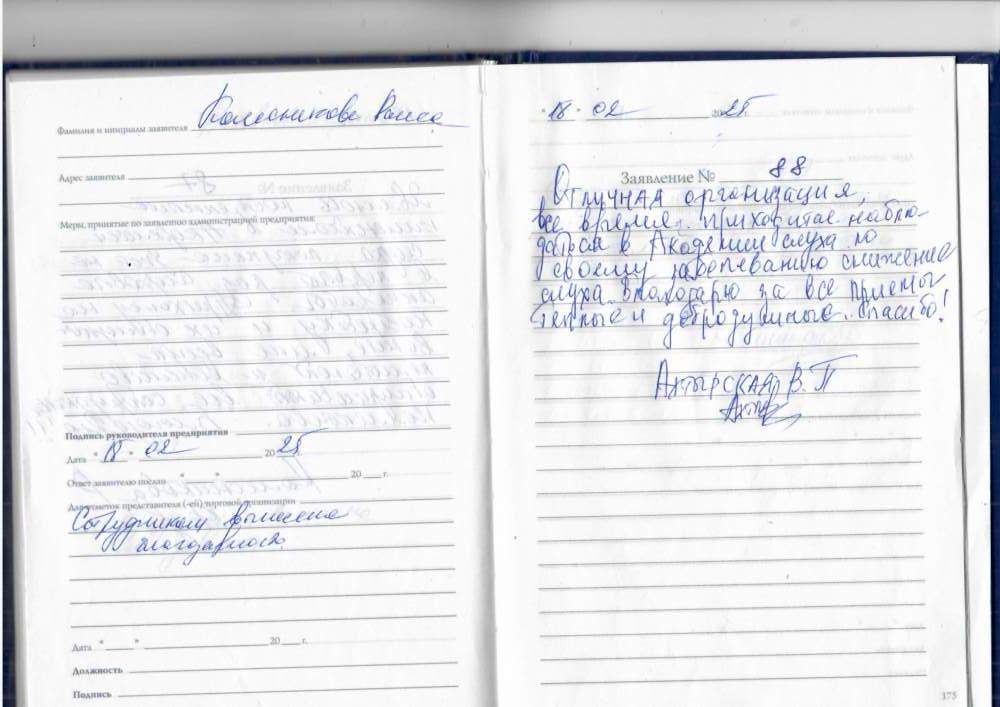 Фамилия и инициалы заявителя Колесникова Раиса
Адрес заявителя
Меры, принятые по заявлению администрацией предприятия:
Подпись руководителя предприятия
Дата "18" 02 2025
Ответ заявителю послан " " 20 г.
Для отметок представителя (-ей) торговой организации
Сотрудникам вынесена
благодарность.
Дата " " 20 г.
Должность
Подпись
"18" 02 2025г.
Заявление № 88
Отличная организация,
все время приходится наблю-
даться в Академии слуха по
своему заболеванию снижение
слуха. Благодарю за все приёмы
тёплые и добродушные. Спасибо!
Ахтырская В. П
175